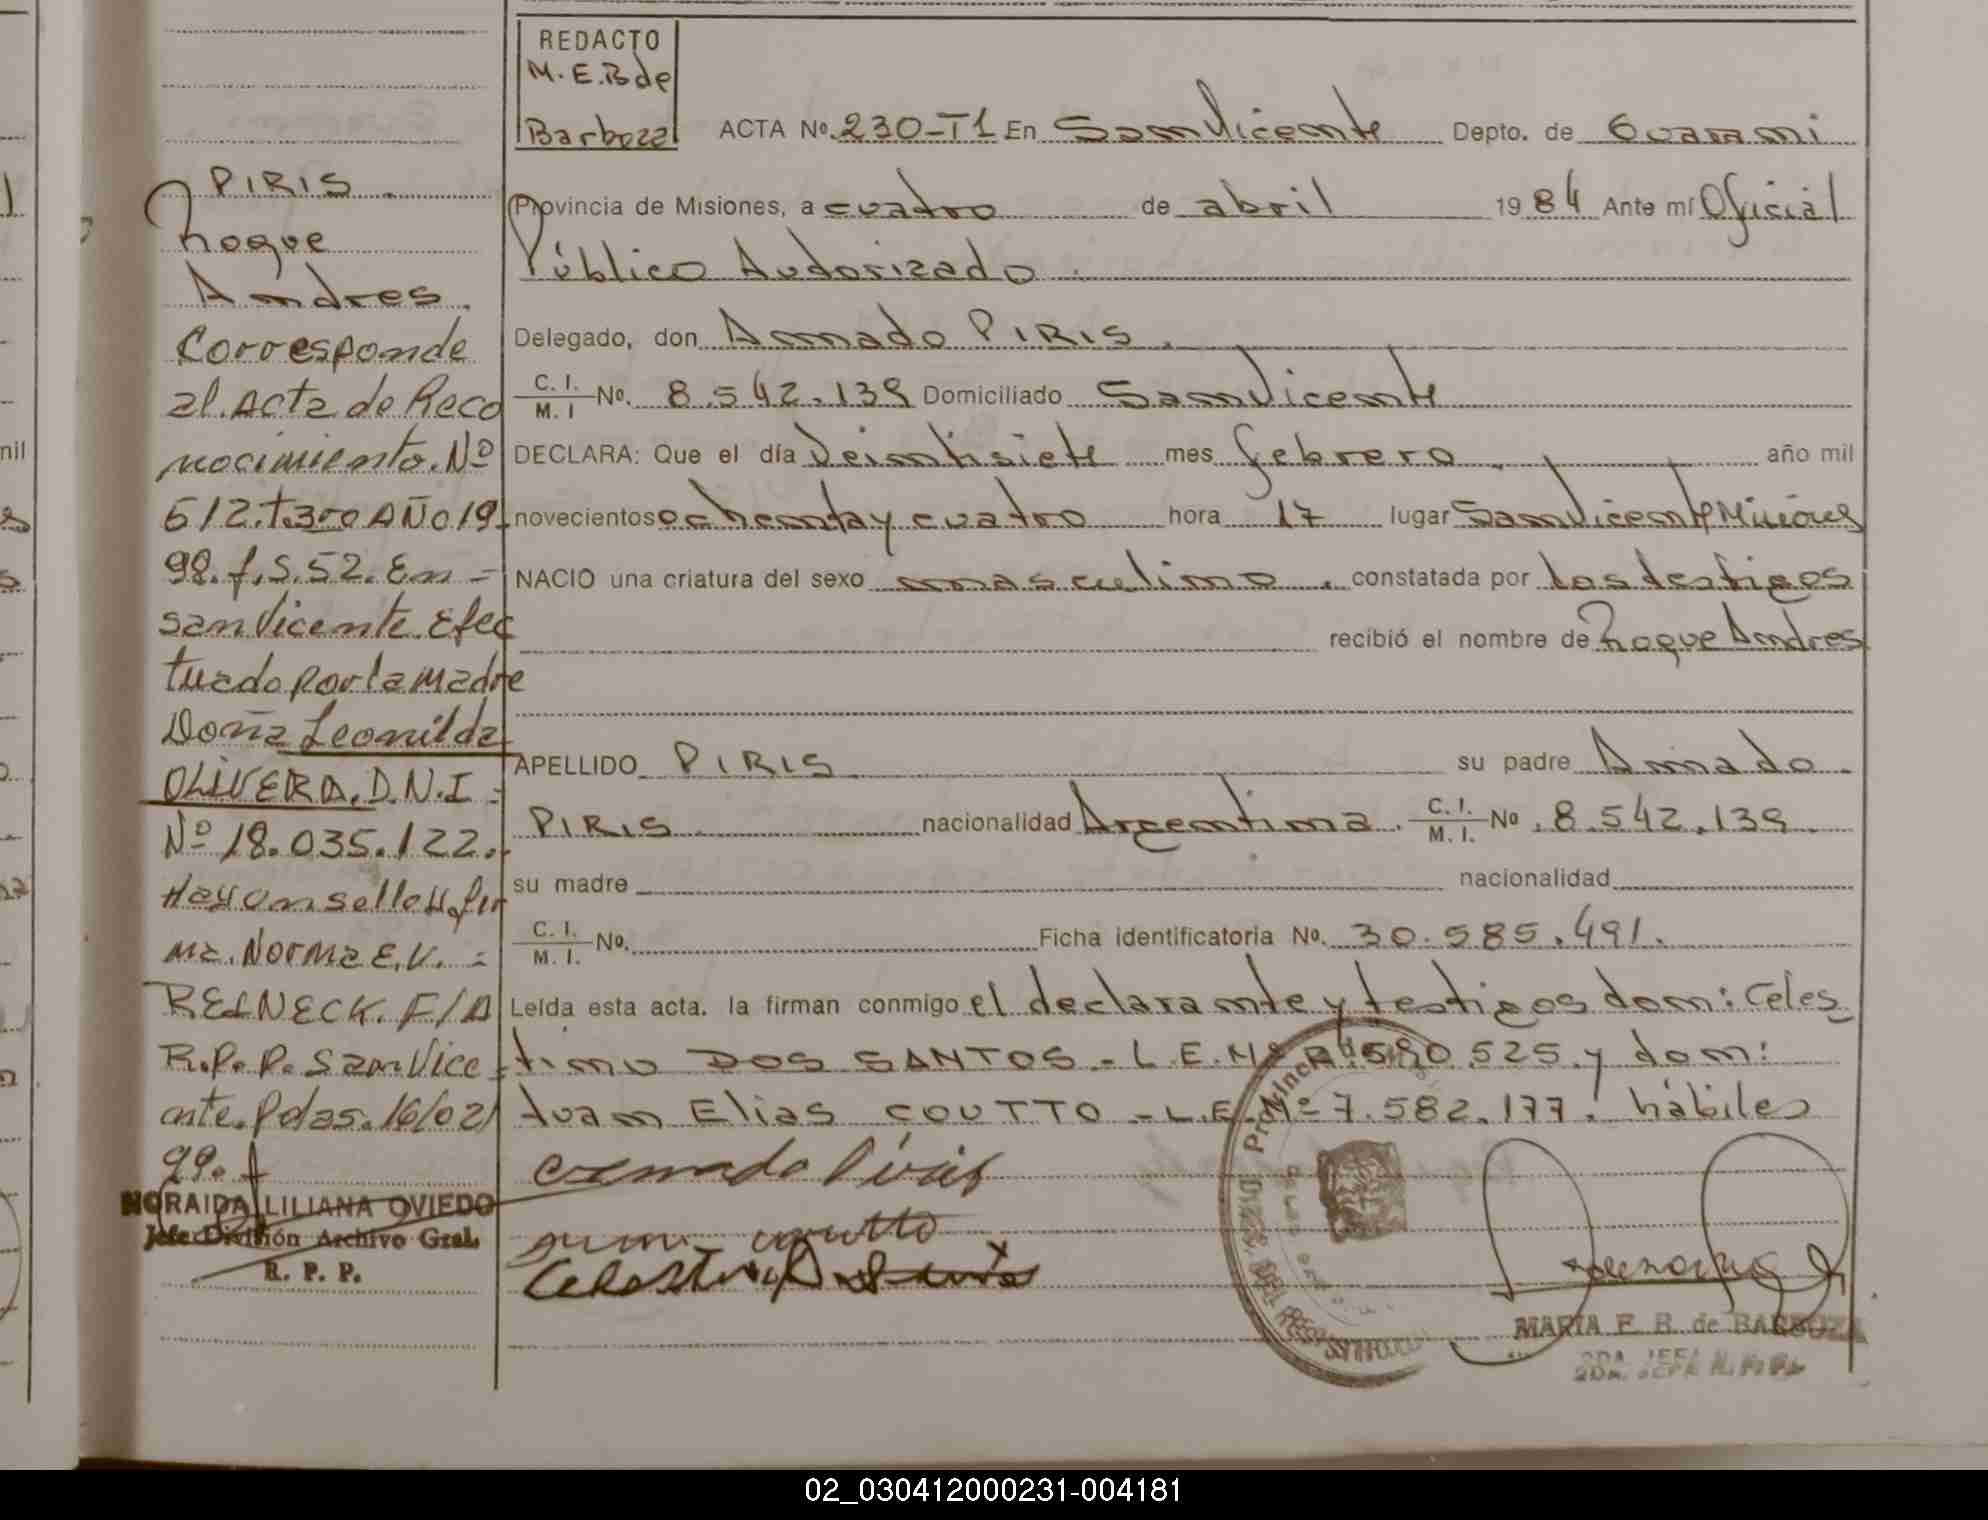 REDACTO
M.E.B de
Barboza
ACTA Nº 230-T1 En San Vicente Depto. de Guarani
Provincia de Misiones, a cuatro de abril 1984 Ante mí Oficial
Público Autorizado
Delegado, don Amado PIRIS.
C. I. / M. I Nº. 8.542.139 Domiciliado San Vicente
DECLARA: Que el día Veintisiete mes febrero. año mil
novecientos ochenta y cuatro hora 17 lugar San Vicente Misiones
NACIO una criatura del sexo masculino. constatada por los testigos
recibió el nombre de Roque Andres
APELLIDO PIRIS su padre Amado
PIRIS nacionalidad Argentina. C. I. / M. I. Nº 8.542.139.
su madre nacionalidad
C. I. / M. I. Nº. Ficha identificatoria Nº. 30.585.491.
Leída esta acta. la firman conmigo el declarante y testigos don: Celes
tino DOS SANTOS - L.E.Nº 580.525 y don:
Juan Elias COUTTO - L.E.Nº 7.582.177. hábiles
Amado Piris
Juan Coutto
Celestino Do Santos
Provincia
MARIA E. B. de BARBOZA
2DA. JEFA R.P.P.
PIRIS.
Roque
Andres.
Corresponde
al Acta de Reco
nocimiento. Nº
612.t.3ro AÑO 19
98.f.S.52. En =
san Vicente Efec
tuado por la madre
Doña Leonilda
OLIVERA. D.N.I =
Nº 18.035.122.
Hay un sello y fir
ma. Norma E.V. =
REINECK. F/A
R.P.P. San Vice =
nte. Pdas. 16/02/
99.
NORAIDA LILIANA OVIEDO
Jefe División Archivo Gral.
R. P. P.
02_030412000231-004181